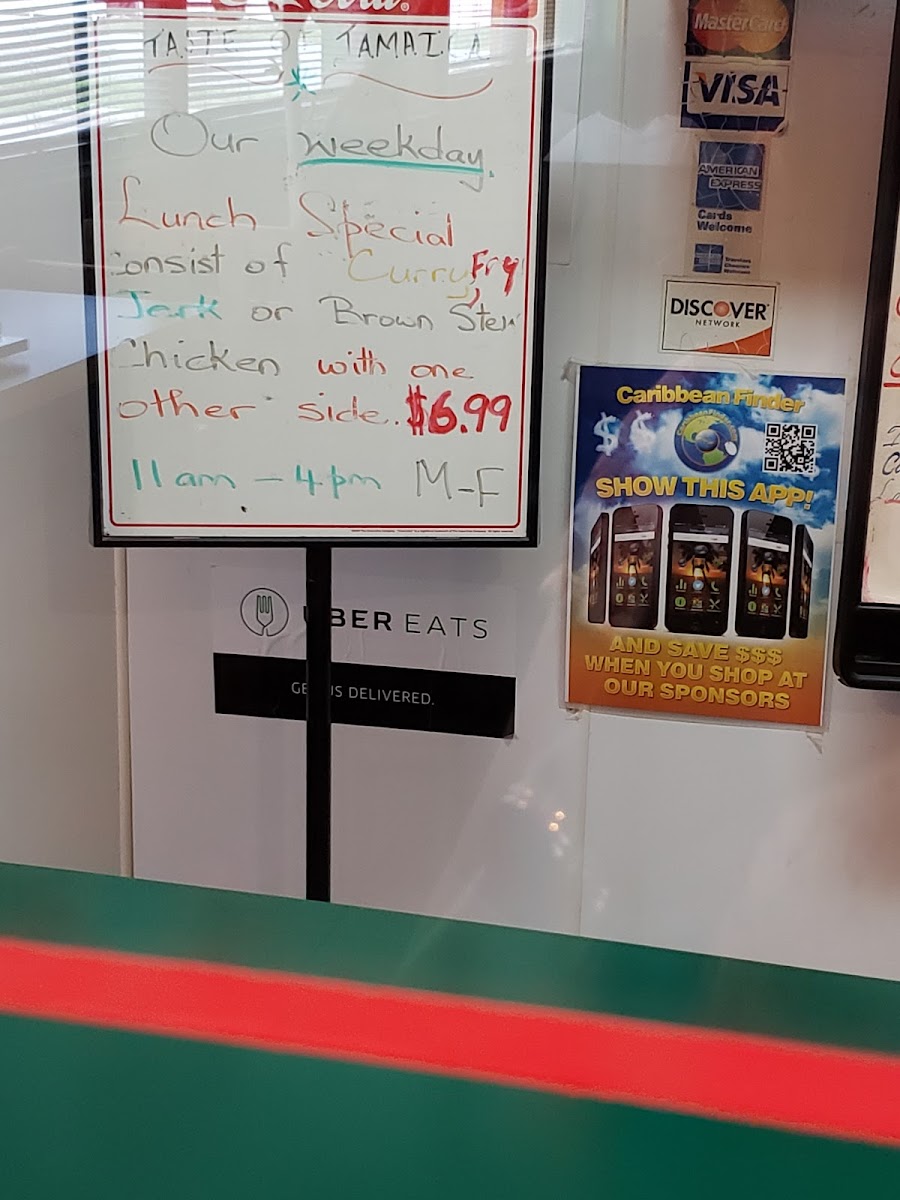 TASTE OF JAMAICA
Our weekday
Lunch Special
consist of Curry, Fry
Jerk or Brown Stew
Chicken with one
other side. $6.99
11am - 4pm M-F
UBER EATS
GET US DELIVERED.
MasterCard
VISA
AMERICAN
EXPRESS
Cards
Welcome
DISCOVER
NETWORK
Caribbean Finder
$
SHOW THIS APP!
AND SAVE $$$
WHEN YOU SHOP AT
OUR SPONSORS